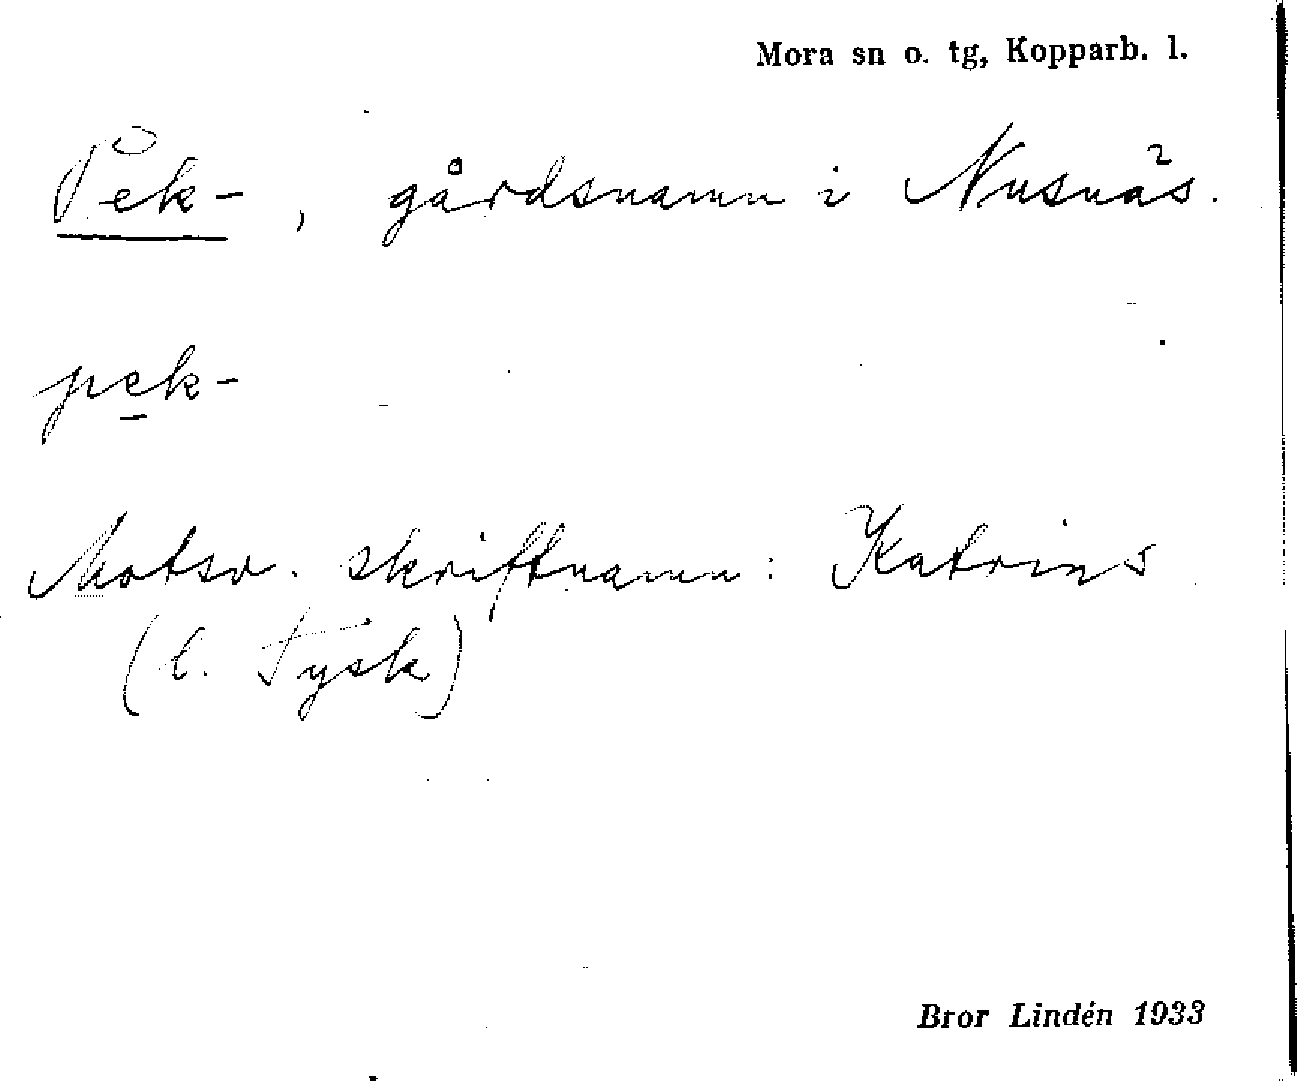 Mora sn o. tg, Kopparb. l.
Pek-, gårdsnamn i Nusnäs.
pek-
Motsv. skriftnamn: Katrins
(l. Tysk)
Bror Lindén 1933